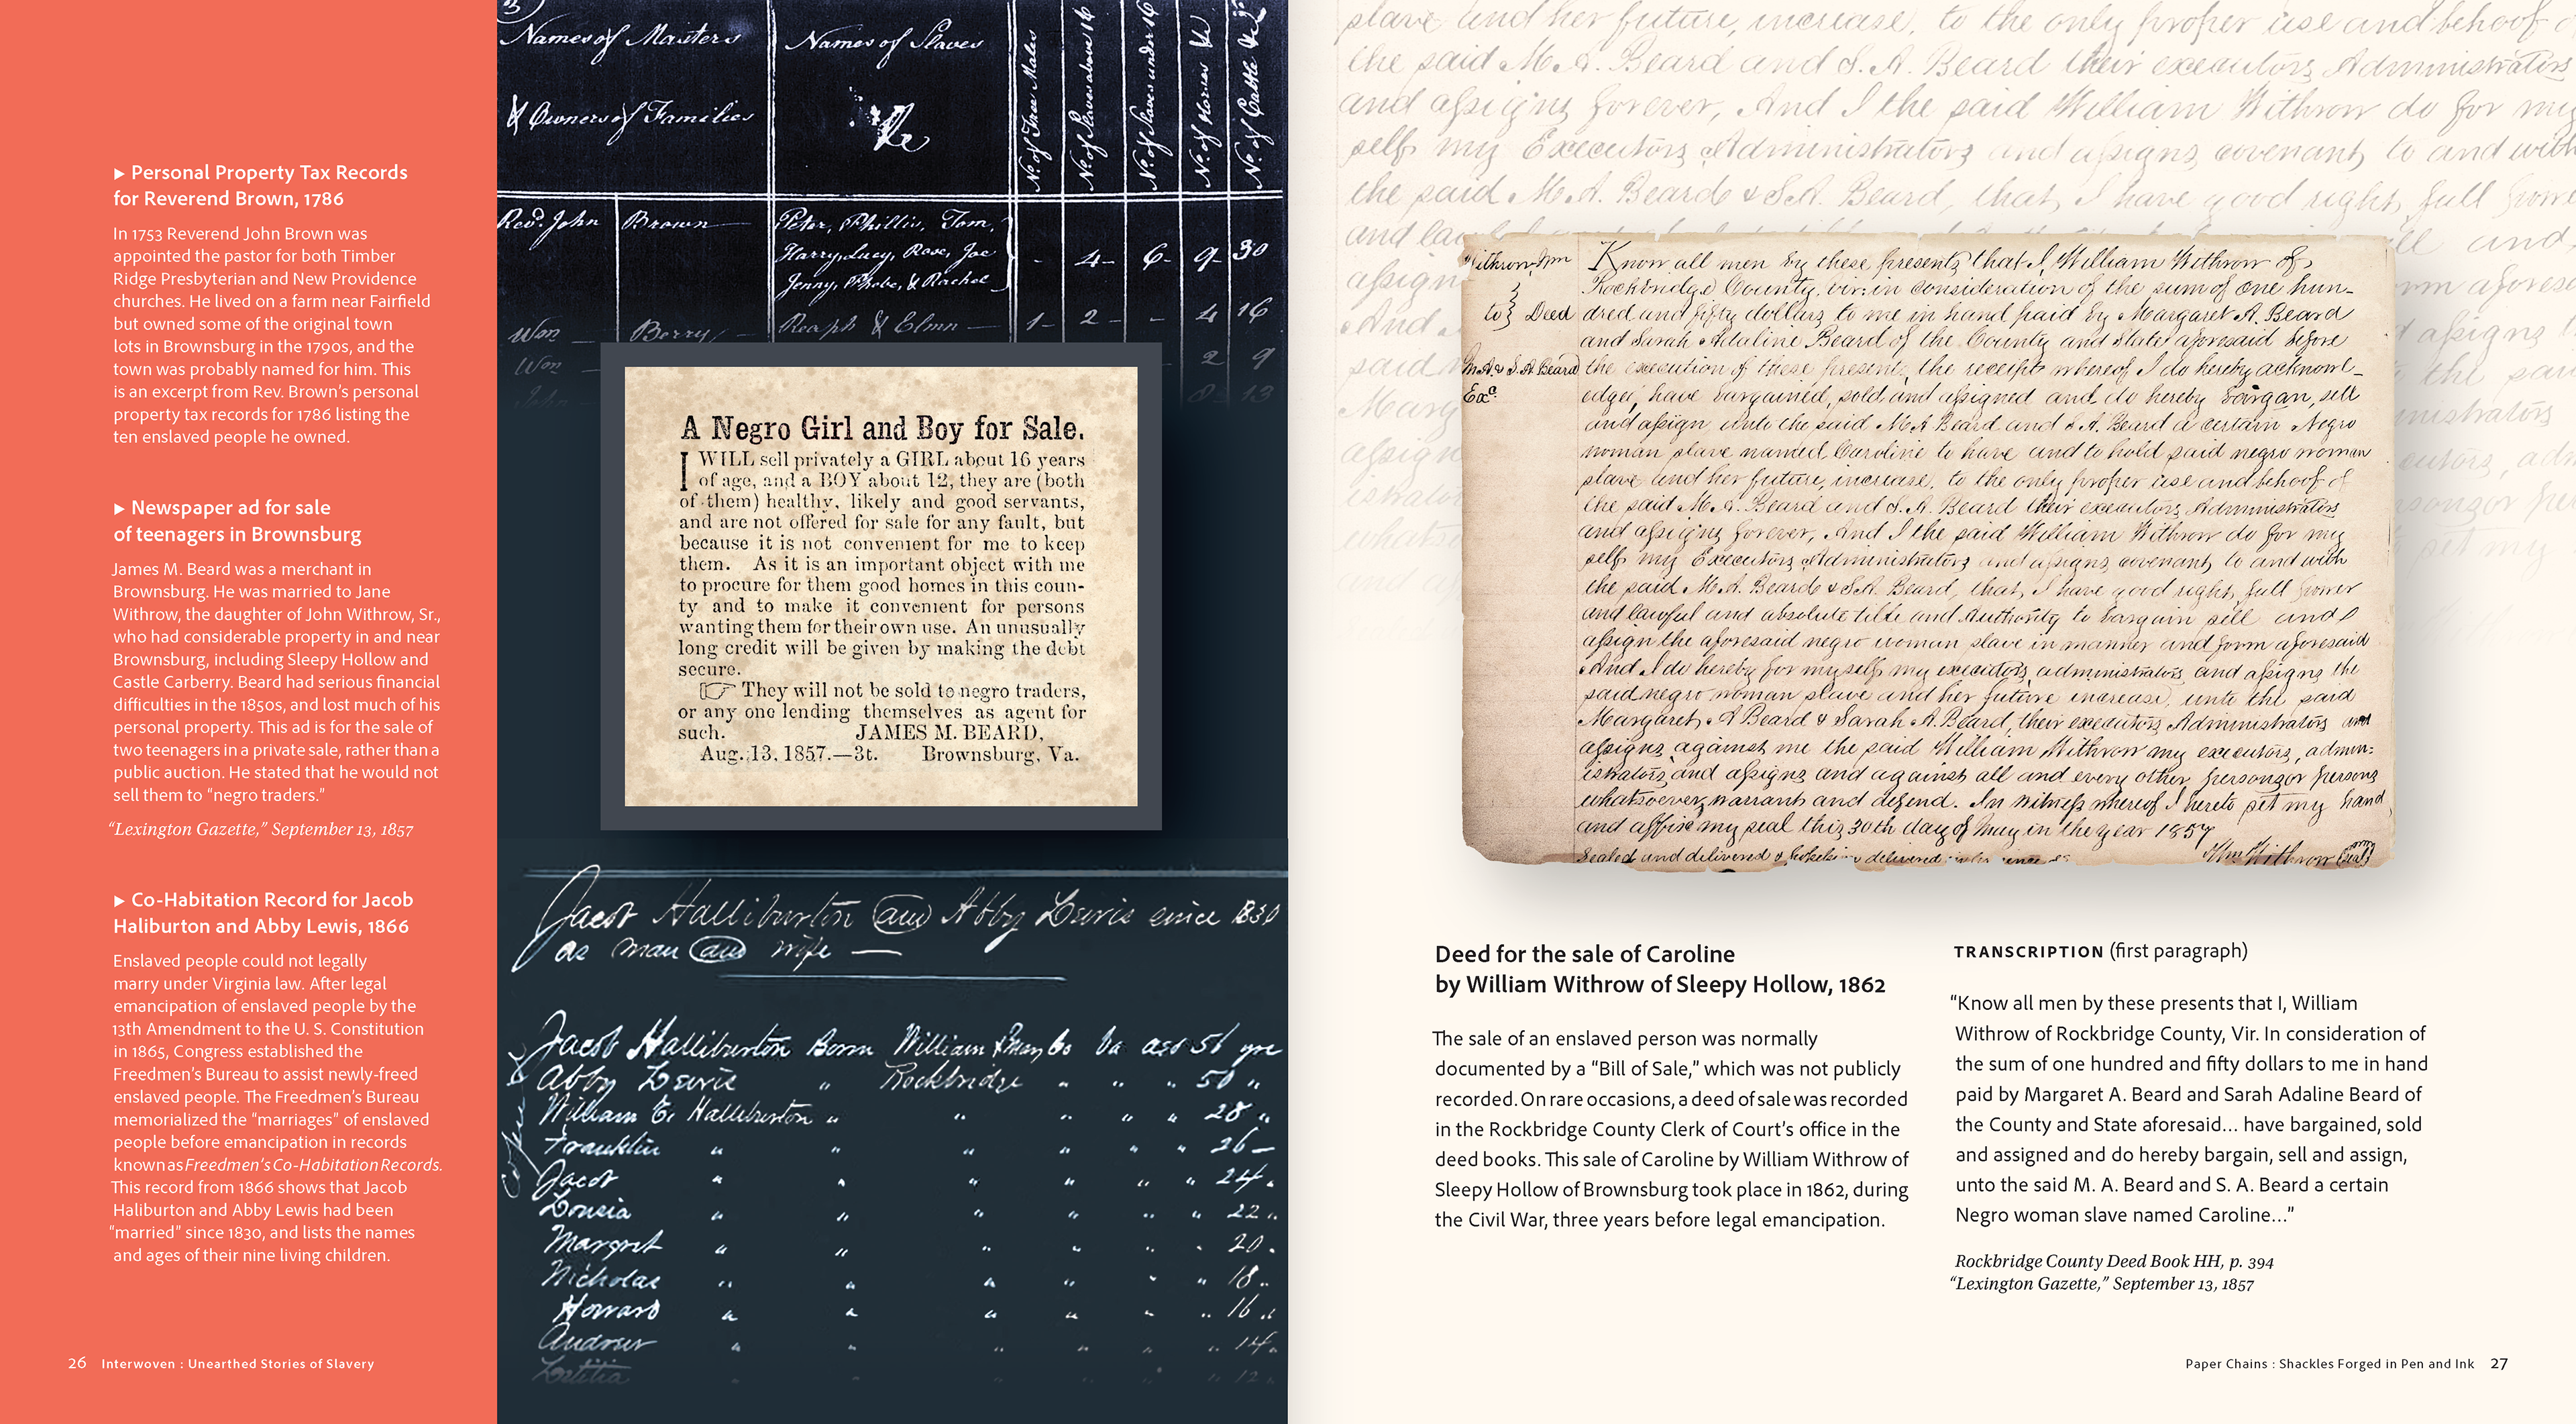 ▸ Personal Property Tax Records
for Reverend Brown, 1786
In 1753 Reverend John Brown was
appointed the pastor for both Timber
Ridge Presbyterian and New Providence
churches. He lived on a farm near Fairfield
but owned some of the original town
lots in Brownsburg in the 1790s, and the
town was probably named for him. This
is an excerpt from Rev. Brown's personal
property tax records for 1786 listing the
ten enslaved people he owned.
▸ Newspaper ad for sale
of teenagers in Brownsburg
James M. Beard was a merchant in
Brownsburg. He was married to Jane
Withrow, the daughter of John Withrow, Sr.,
who had considerable property in and near
Brownsburg, including Sleepy Hollow and
Castle Carberry. Beard had serious financial
difficulties in the 1850s, and lost much of his
personal property. This ad is for the sale of
two teenagers in a private sale, rather than a
public auction. He stated that he would not
sell them to "negro traders."
"Lexington Gazette," September 13, 1857
▸ Co-Habitation Record for Jacob
Haliburton and Abby Lewis, 1866
Enslaved people could not legally
marry under Virginia law. After legal
emancipation of enslaved people by the
13th Amendment to the U. S. Constitution
in 1865, Congress established the
Freedmen's Bureau to assist newly-freed
enslaved people. The Freedmen's Bureau
memorialized the "marriages" of enslaved
people before emancipation in records
known as Freedmen's Co-Habitation Records.
This record from 1866 shows that Jacob
Haliburton and Abby Lewis had been
"married" since 1830, and lists the names
and ages of their nine living children.
26 Interwoven : Unearthed Stories of Slavery
Names of Masters
& Owners of Families
Names of Slaves
&c
No. of Free Males
No. of Slaves above 16
No. of Slaves under 16
No. of Horses &c
No. of Cattle &c
Revd. John Brown Peter, Phillis, Tom,
Harry, Lucy, Rose, Joe - 4 - 6 - 9 - 30
Jenny, Phebe, & Rachel
Wm Berry 1 - 2 - - 4 16
Wm 2 9
John 8 13
A Negro Girl and Boy for Sale.
I WILL sell privately a GIRL about 16 years
of age, and a BOY about 12, they are (both
of them) healthy, likely and good servants,
and are not offered for sale for any fault, but
because it is not convenient for me to keep
them. As it is an important object with me
to procure for them good homes in this coun-
ty and to make it convenient for persons
wanting them for their own use. An unusually
long credit will be given by making the debt
secure.
☞ They will not be sold to negro traders,
or any one lending themselves as agent for
such. JAMES M. BEARD,
Aug. 13, 1857.—3t. Brownsburg, Va.
Jacob Halliburton and Abby Lewis since 1830
as man and wife —
Jacob Halliburton Born 56 yrs
Abby Lewis " Rockbridge " " " 50 "
William E. Halliburton " " " " " 28 "
Franklin " " " " " " 26 —
Jacob " " " " " " 24 "
Lousia " " " " " " 22 "
Margret " " " " " " 20 "
Nicholas " " " " " " 18 "
Howard " " " " " " 16 "
Andrew " " " " " " 14 "
Letitia " 12 "
slave and her future, increase, to the only proper use and behoof of
the said M. A. Beard and S. A. Beard their executors Administrators
and assigns forever, And I the said William Withrow do for my
self my Executors Administrators and assigns, covenant, to and with
the said M. A. Beard & S. A. Beard, that, I have good right, full power
Withrow, Wm
to } Deed
M. A. & S. A. Beard
Know all men by these presents that I, William Withrow of
Rockbridge County, vir: in consideration of the sum of one hun-
dred and fifty dollars to me in hand paid by Margaret A. Beard
and Sarah Adaline Beard of the County and State aforesaid before
the execution of these presents, the receipt whereof I do hereby acknowl-
edge, have bargained, sold and assigned and do hereby bargan, sell
and assign unto the said M. A. Beard and S. A. Beard a certain Negro
woman slave named, Caroline to have and to hold said negro woman
slave and her future, increase, to the only proper use and behoof of
the said M. A. Beard and S. A. Beard their executors Administrators
and assigns forever, And I the said William Withrow do for my
self my Executors Administrators and assigns, covenant, to and with
the said M. A. Beard & S. A. Beard, that, I have good right, full power
and lawful and absolute title and Authority to bargain sell and
assign the aforesaid negro woman slave in manner and form aforesaid
And I do hereby for myself, my executors, administrators and assigns the
said negro woman slave and her future increase, unto the said
Margaret A Beard & Sarah A. Beard, their executors Administrators and
assigns, against me the said William Withrow my executors, admin:
istrators, and assigns and against all and every other, person or persons
whatsoever, warrant and defend. In witness whereof I hereto set my hand
and affix my seal this 30th day of May in the year 1857
Sealed and delivered Wm Withrow
Deed for the sale of Caroline
by William Withrow of Sleepy Hollow, 1862
The sale of an enslaved person was normally
documented by a "Bill of Sale," which was not publicly
recorded. On rare occasions, a deed of sale was recorded
in the Rockbridge County Clerk of Court's office in the
deed books. This sale of Caroline by William Withrow of
Sleepy Hollow of Brownsburg took place in 1862, during
the Civil War, three years before legal emancipation.
TRANSCRIPTION (first paragraph)
"Know all men by these presents that I, William
Withrow of Rockbridge County, Vir. In consideration of
the sum of one hundred and fifty dollars to me in hand
paid by Margaret A. Beard and Sarah Adaline Beard of
the County and State aforesaid... have bargained, sold
and assigned and do hereby bargain, sell and assign,
unto the said M. A. Beard and S. A. Beard a certain
Negro woman slave named Caroline..."
Rockbridge County Deed Book HH, p. 394
"Lexington Gazette," September 13, 1857
Paper Chains : Shackles Forged in Pen and Ink 27